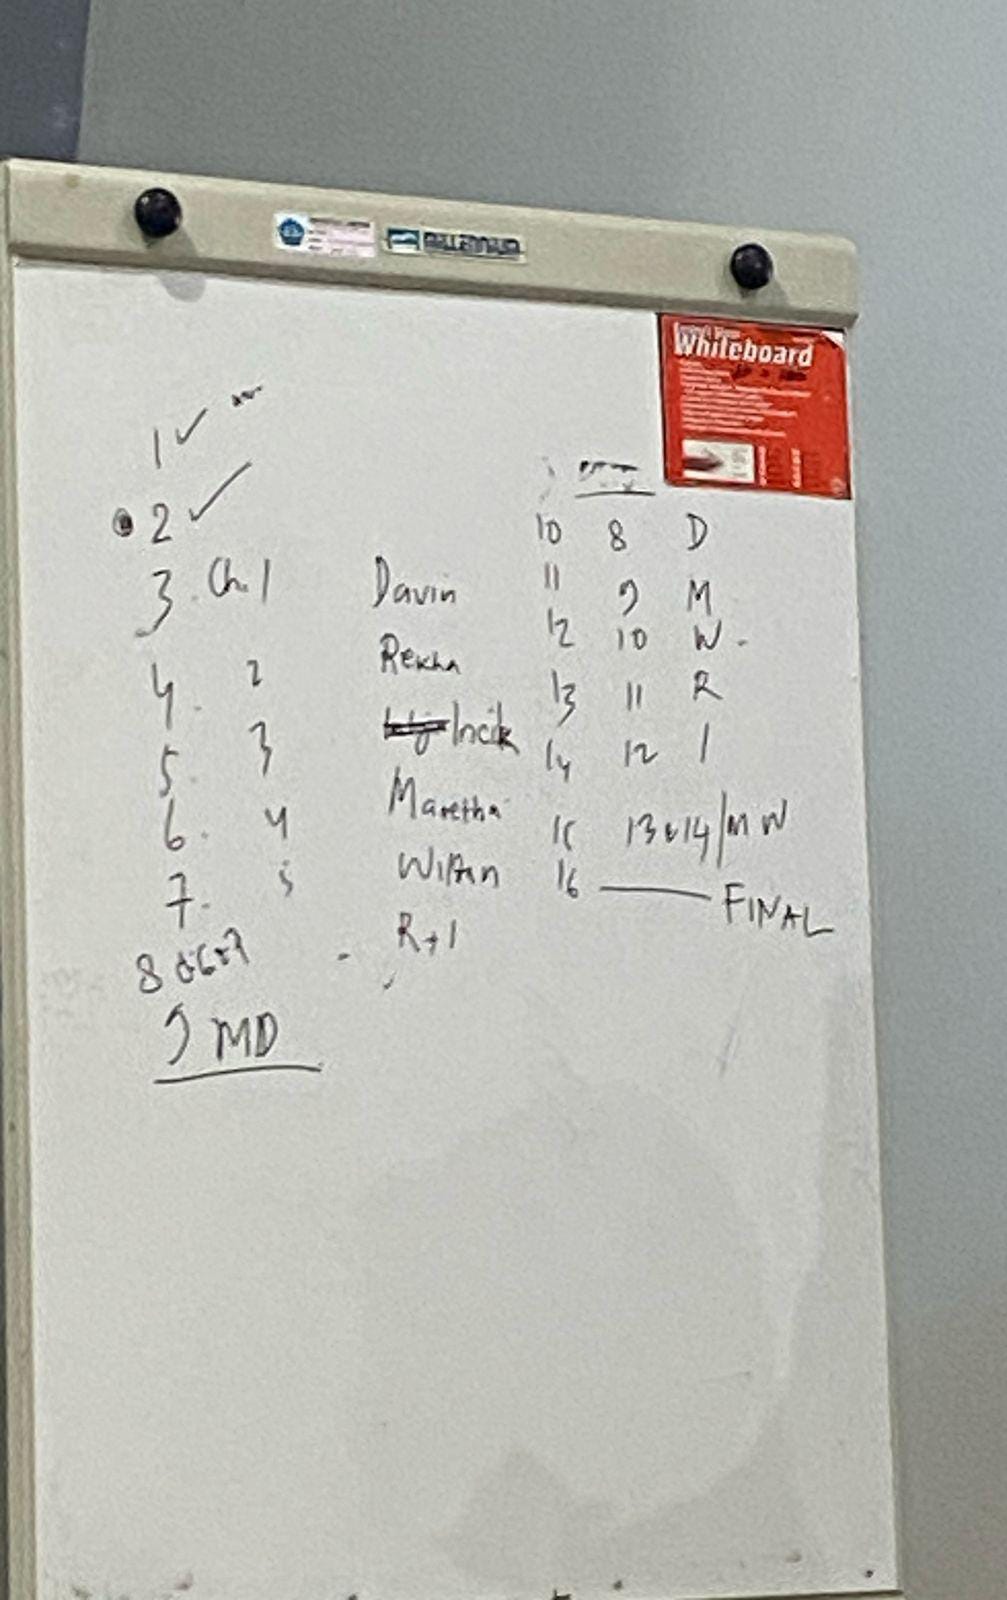 MILLENNIUM
Whiteboard
1 ✓
2 ✓
3. Ch. 1 Davin
4. 2 Rekha
5. 3 Incik
6. 4 Maretha
7. 5 Willian
8 6 & 7 R + I
9 MD
10 8 D
11 9 M
12 10 W
13 11 R
14 12 I
15 13 & 14 / M W
16 — FINAL